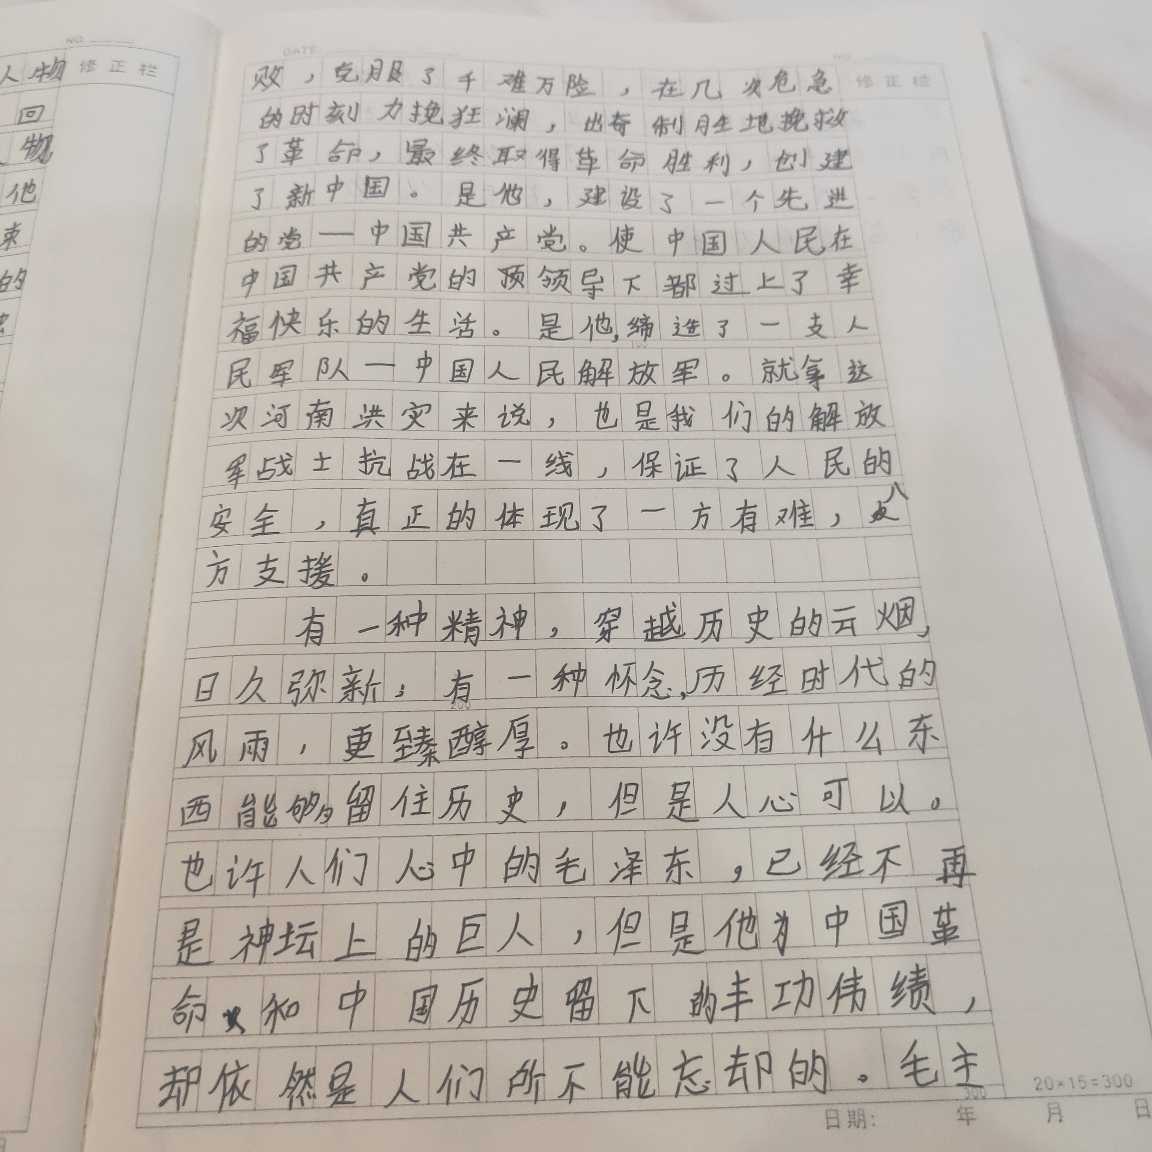 NO
人物
修正栏
回
物
他
束
的
DATE
NO
修正栏
败，克服了千难万险，在几次危急
的时刻力挽狂澜，出奇制胜地挽救
了革命，最终取得革命胜利，创建
了新中国。是他，建设了一个先进
的党一中国共产党。使中国人民在
中国共产党的领导下都过上了幸
福快乐的生活。是他，缔造了一支人
民军队一中国人民解放军。就拿这
次河南洪灾来说，也是我们的解放
军战士抗战在一线，保证了人民的
安全，真正的体现了一方有难，八
方支援。
有一种精神，穿越历史的云烟，
日久弥新；有一种怀念，历经时代的
200
风雨，更臻醇厚。也许没有什么东
西能够留住历史，但是人心可以。
也许人们心中的毛泽东，已经不再
是神坛上的巨人，但是他为中国革
命和中国历史留下的丰功伟绩，
却依然是人们所不能忘却的。毛主
300
20×15=300
日期： 年 月 日